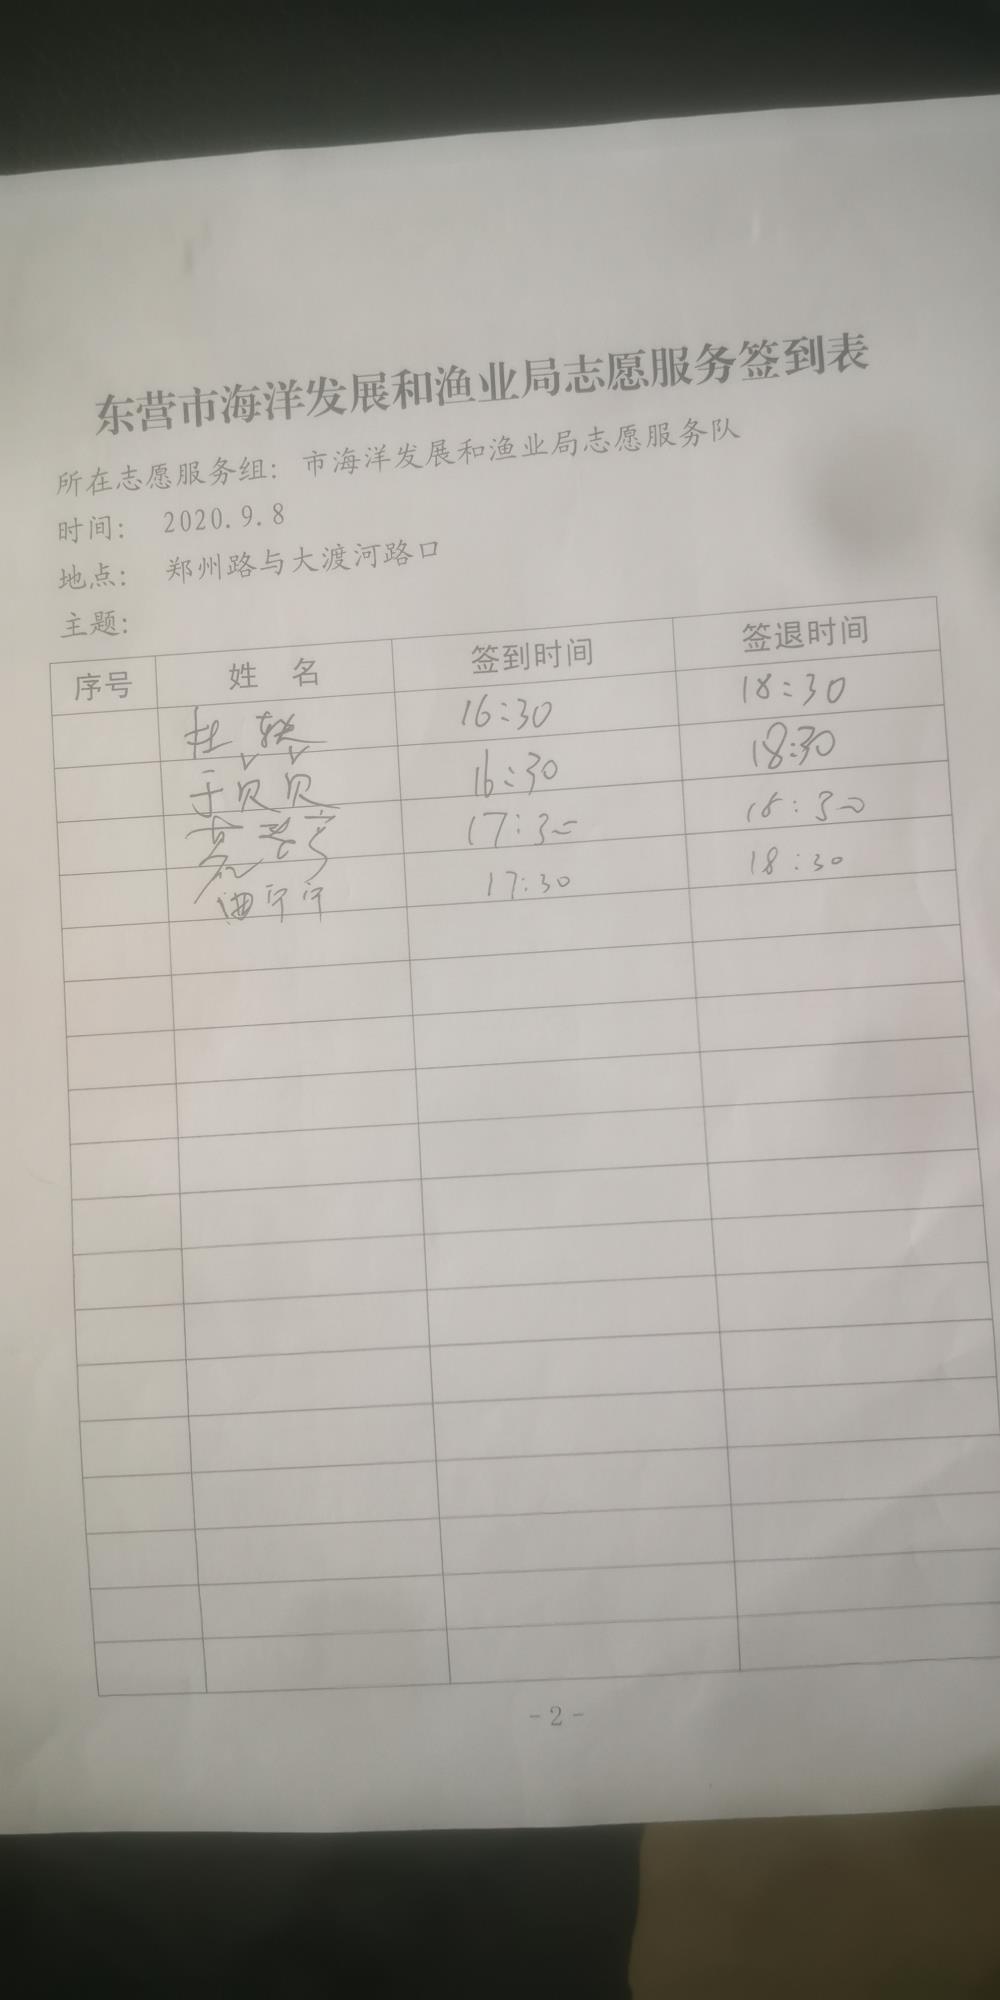 东营市海洋发展和渔业局志愿服务签到表
所在志愿服务组: 市海洋发展和渔业局志愿服务队
时间: 2020.9.8
地点: 郑州路与大渡河路口
主题:
序号 姓 名 签到时间 签退时间
杜 16:30 18:30
于贝贝 16:30 18:30
17:30 18:30
宁宁 17:30 18:30
-2-